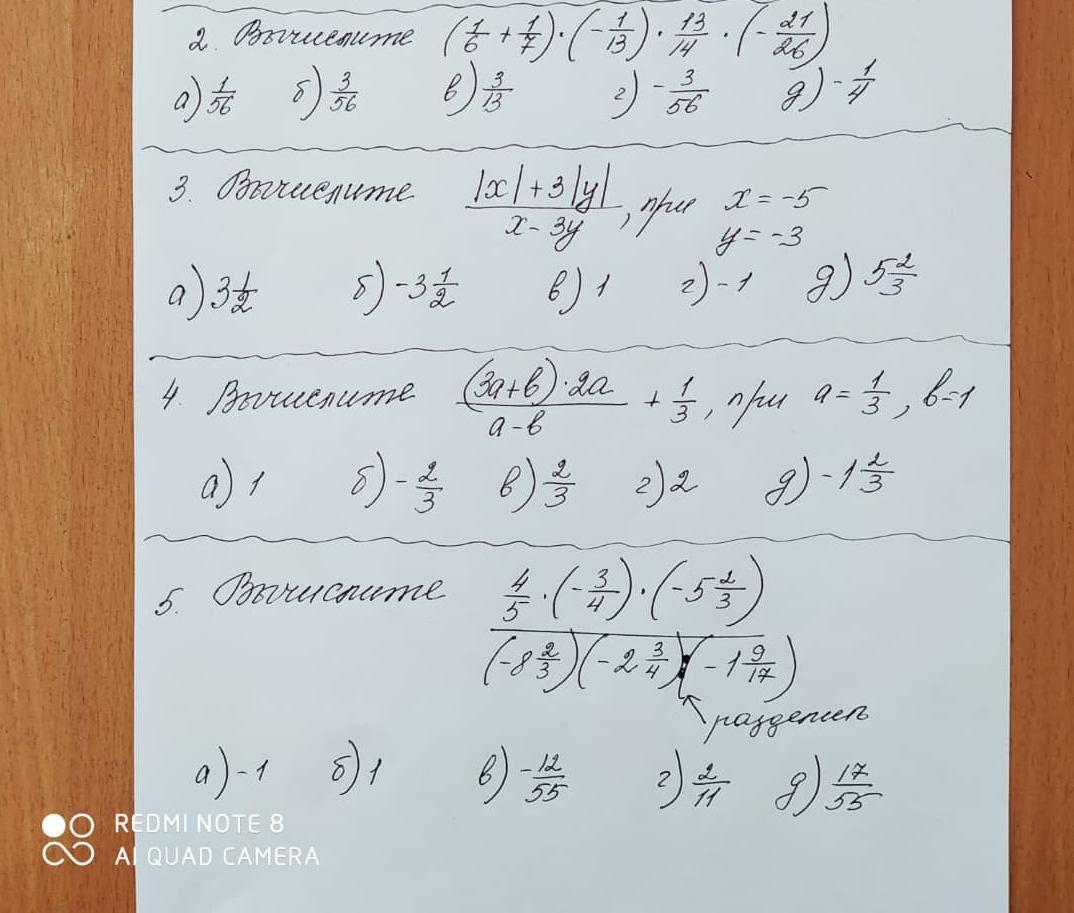 2. Вычислите (1/6 + 1/7)·(-1/13)·13/14·(-21/26)
а) 1/56 б) 3/56 в) 3/13 г) -3/56 д) -1/4
3. Вычислите |x|+3|y| / x-3y, при x = -5
y = -3
а) 3 1/2 б) -3 1/2 в) 1 г) -1 д) 5 2/3
4. Вычислите (3a+b)·2a / a-b + 1/3, при a = 1/3, b=1
а) 1 б) -2/3 в) 2/3 г) 2 д) -1 2/3
5. Вычислите 4/5·(-3/4)·(-5 2/3) / (-8 2/3)(-2 3/4):(-1 9/17)
разделить
а) -1 б) 1 в) -12/55 г) 2/11 д) 17/55
REDMI NOTE 8
AI QUAD CAMERA